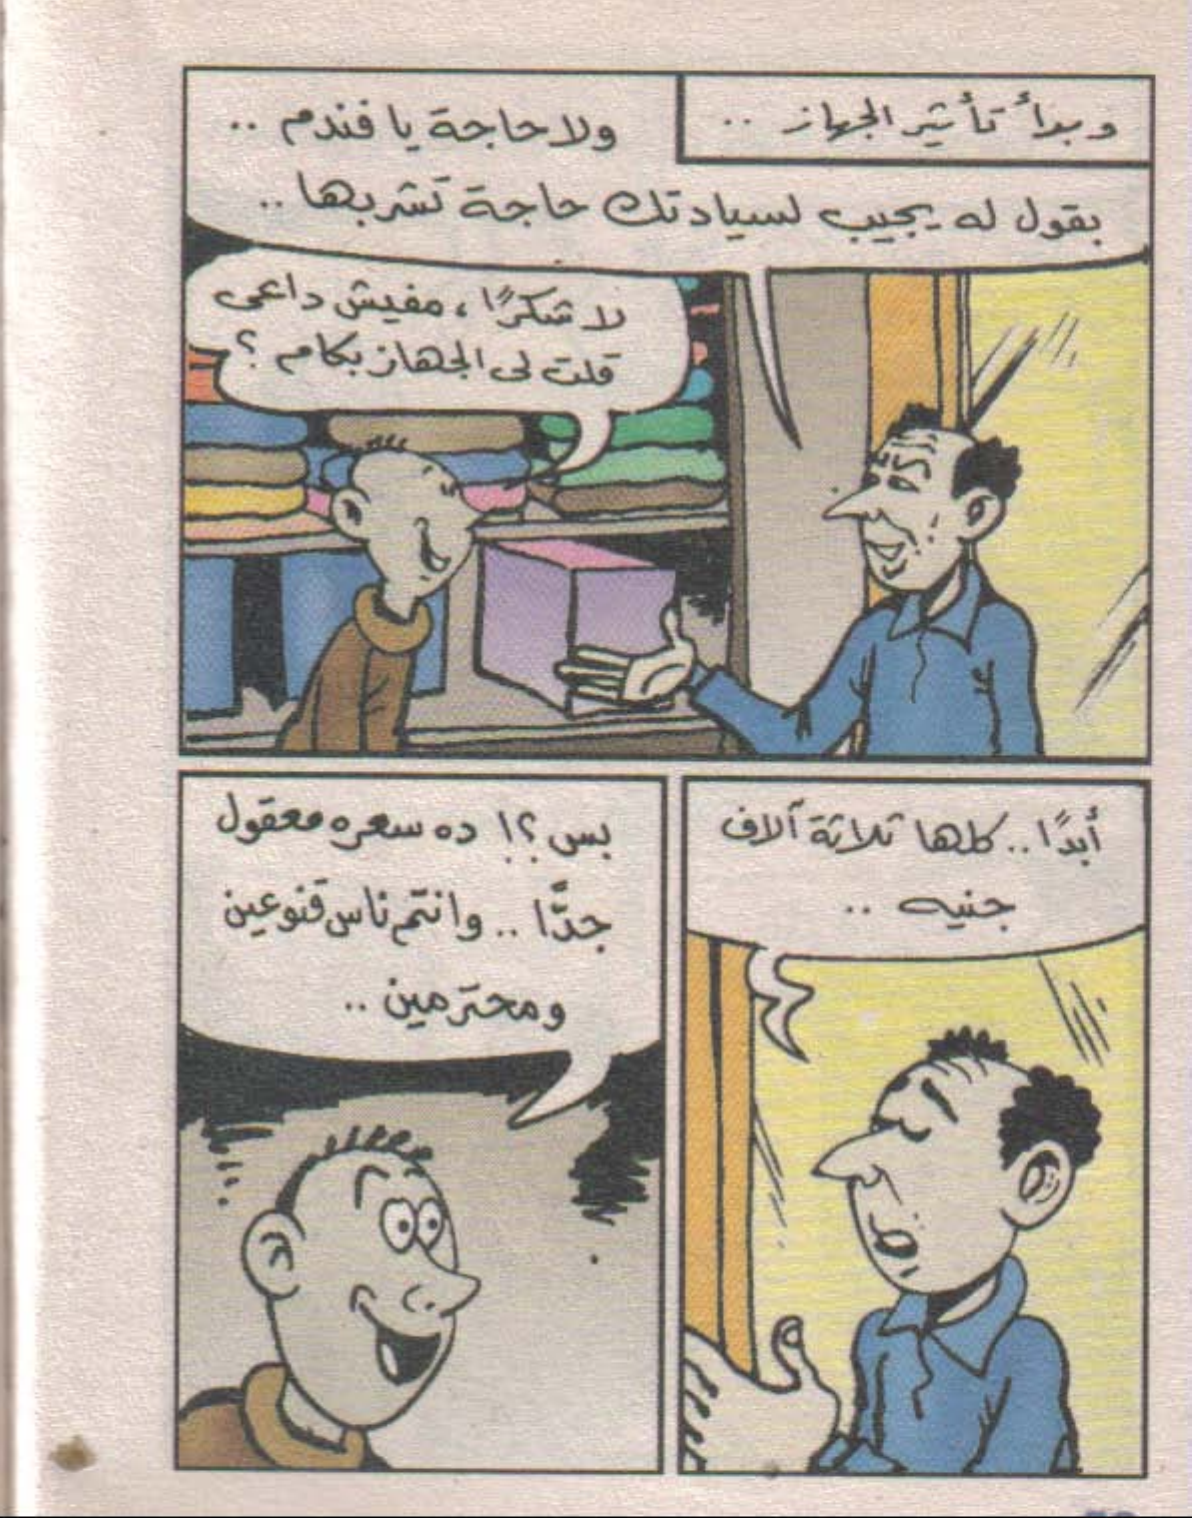 وبدأ تأثير الجهاز ..
ولا حاجة يا فندم ..
بقول له يجيب لسيادتك حاجة تشربها ..
لا شكرًا ، مفيش داعى
قلت لى الجهاز بكام ؟
أبدًا .. كلها ثلاثة آلاف
جنيه ..
بس ؟! ده سعره معقول
جدًّا .. وانتم ناس قنوعين
ومحترمين ..